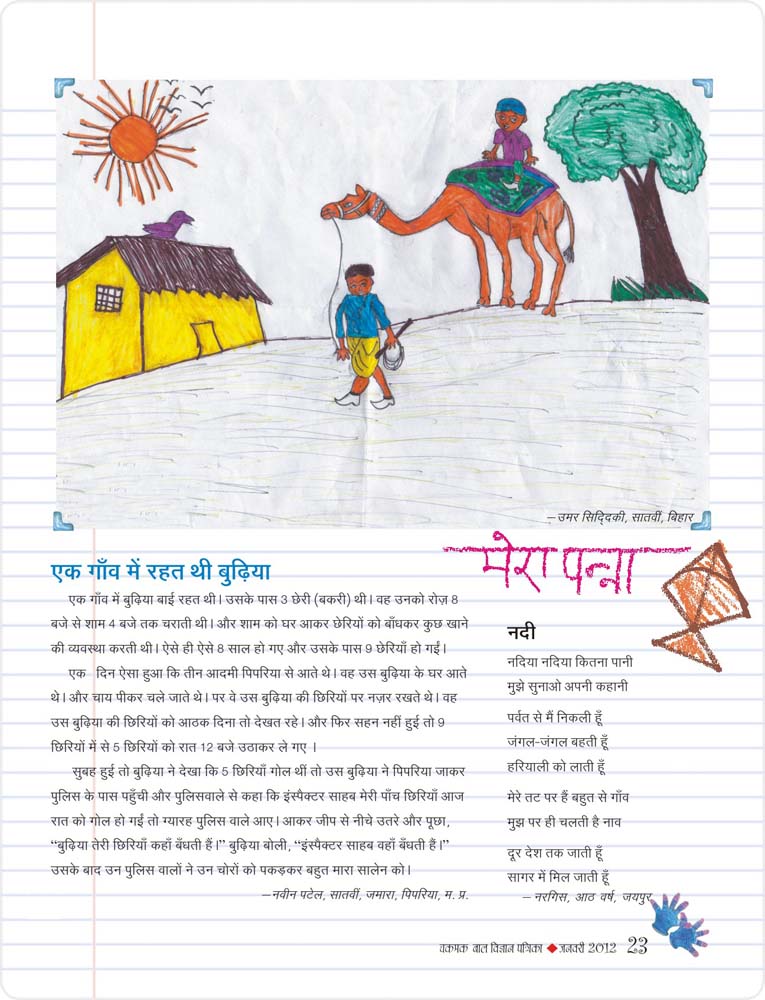 – उमर सिद्दिकी, सातवीं, बिहार
मेरा पन्ना
एक गाँव में रहत थी बुढ़िया
एक गाँव में बुढ़िया बाई रहत थी। उसके पास 3 छेरी (बकरी) थी। वह उनको रोज़ 8
बजे से शाम 4 बजे तक चराती थी। और शाम को घर आकर छेरियों को बाँधकर कुछ खाने
की व्यवस्था करती थी। ऐसे ही ऐसे 8 साल हो गए और उसके पास 9 छेरियाँ हो गईं।
एक दिन ऐसा हुआ कि तीन आदमी पिपरिया से आते थे। वह उस बुढ़िया के घर आते
थे। और चाय पीकर चले जाते थे। पर वे उस बुढ़िया की छिरियों पर नज़र रखते थे। वह
उस बुढ़िया की छिरियों को आठक दिना तो देखत रहे। और फिर सहन नहीं हुई तो 9
छिरियों में से 5 छिरियों को रात 12 बजे उठाकर ले गए ।
सुबह हुई तो बुढ़िया ने देखा कि 5 छिरियाँ गोल थीं तो उस बुढ़िया ने पिपरिया जाकर
पुलिस के पास पहुँची और पुलिसवाले से कहा कि इंस्पैक्टर साहब मेरी पाँच छिरियाँ आज
रात को गोल हो गईं तो ग्यारह पुलिस वाले आए। आकर जीप से नीचे उतरे और पूछा,
“बुढ़िया तेरी छिरियाँ कहाँ बँधती हैं।” बुढ़िया बोली, “इंस्पैक्टर साहब वहाँ बँधती हैं।”
उसके बाद उन पुलिस वालों ने उन चोरों को पकड़कर बहुत मारा सालेन को।
– नवीन पटेल, सातवीं, जमारा, पिपरिया, म. प्र.
नदी
नदिया नदिया कितना पानी
मुझे सुनाओ अपनी कहानी
पर्वत से मैं निकली हूँ
जंगल-जंगल बहती हूँ
हरियाली को लाती हूँ
मेरे तट पर हैं बहुत से गाँव
मुझ पर ही चलती है नाव
दूर देश तक जाती हूँ
सागर में मिल जाती हूँ
– नरगिस, आठ वर्ष, जयपुर
चकमक बाल विज्ञान पत्रिका ◆ जनवरी 2012 23